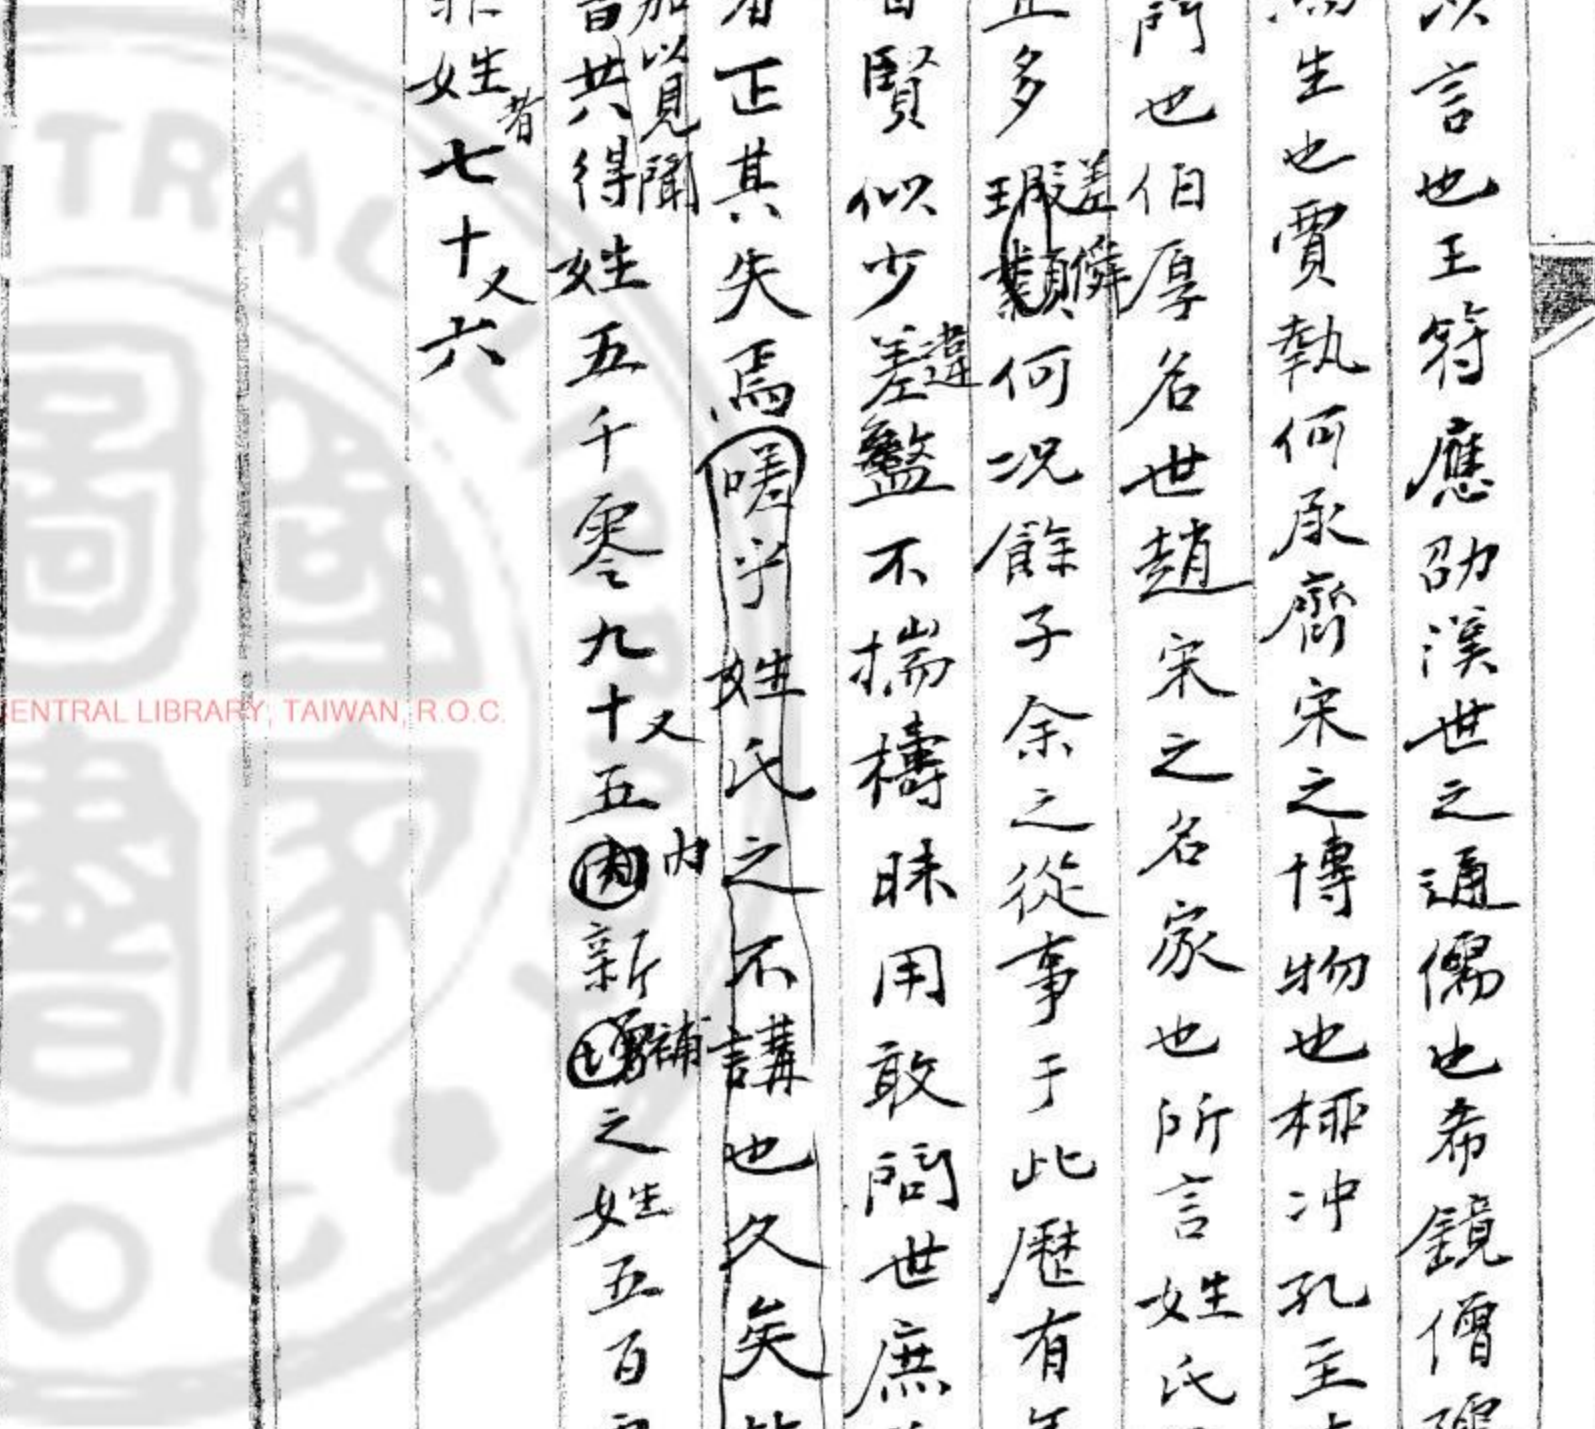 以言也王符應劭漢世之通儒也希鏡僧孺
生也賈執何承齊宋之博物也極冲孔至
門也伯厚名世趙宋之名家也所言姓氏
正多瑕纇差舛何況餘子余之從事于此歷有年
賢似少差違盭不揣檮昧用敢問世庶
者正其失焉嗟乎姓氏之不講也久矣
加以見聞
昔共得姓五千零九十又五內新增補之姓五百
非姓者七十又六
CENTRAL LIBRARY, TAIWAN, R.O.C.
國家圖書館